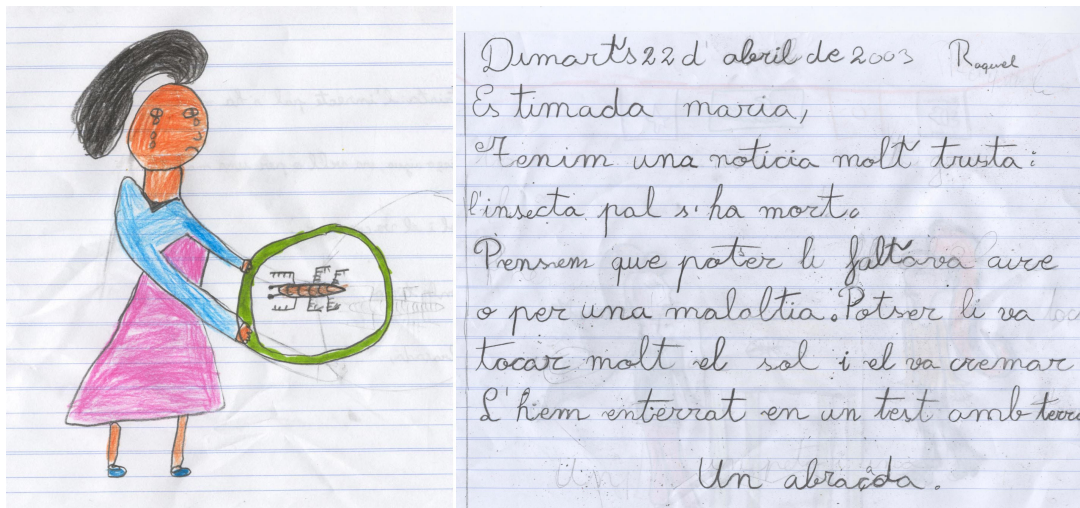 Dimarts 22 d'abril de 2003 Raquel
Es timada maria,
Tenim una noticia molt trista:
l'insecta pal s'ha mort.
Pensem que potser li faltava aire
o per una malaltia. Potser li va
tocar molt el sol i el va cremar
L'hem enterrat en un test amb terra
Un abraçda.